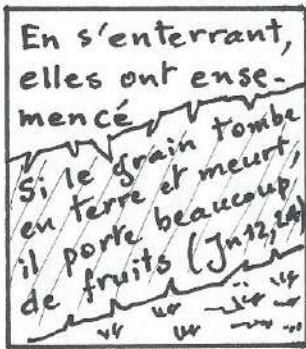 En s'enterrant,
elles ont ense-
mencé
Si le grain tombe
en terre et meurt,
il porte beaucoup
de fruits (Jn 12,24)